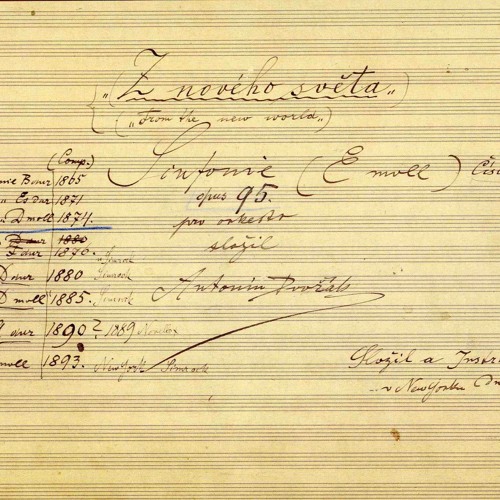 „Z nového světa„
(„From the new world„)
(Comp.)
Sinfonie (E moll)
nie B dur 1865
opus 95.
„ Es dur 1871
„ D moll 1874.
pro orkestr
D dur 1880
složil
F dur 1870. Simrock
D dur 1880 Simrock
D moll 1885. Simrock
Antonín Dvořák
G dur 1890? 1889 Novello
moll 1893. New York Simrock
Složil a Instr
v New Yorku